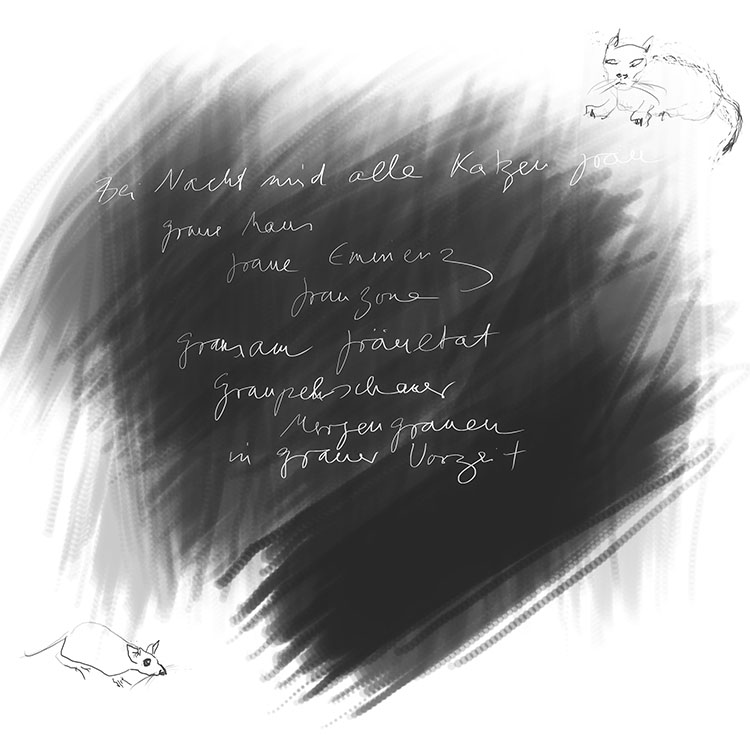 Bei Nacht sind alle Katzen grau
graue Maus
graue Eminenz
Grauzone
grausam Gräueltat
Graupelschauer
Morgengrauen
in grauer Vorzeit